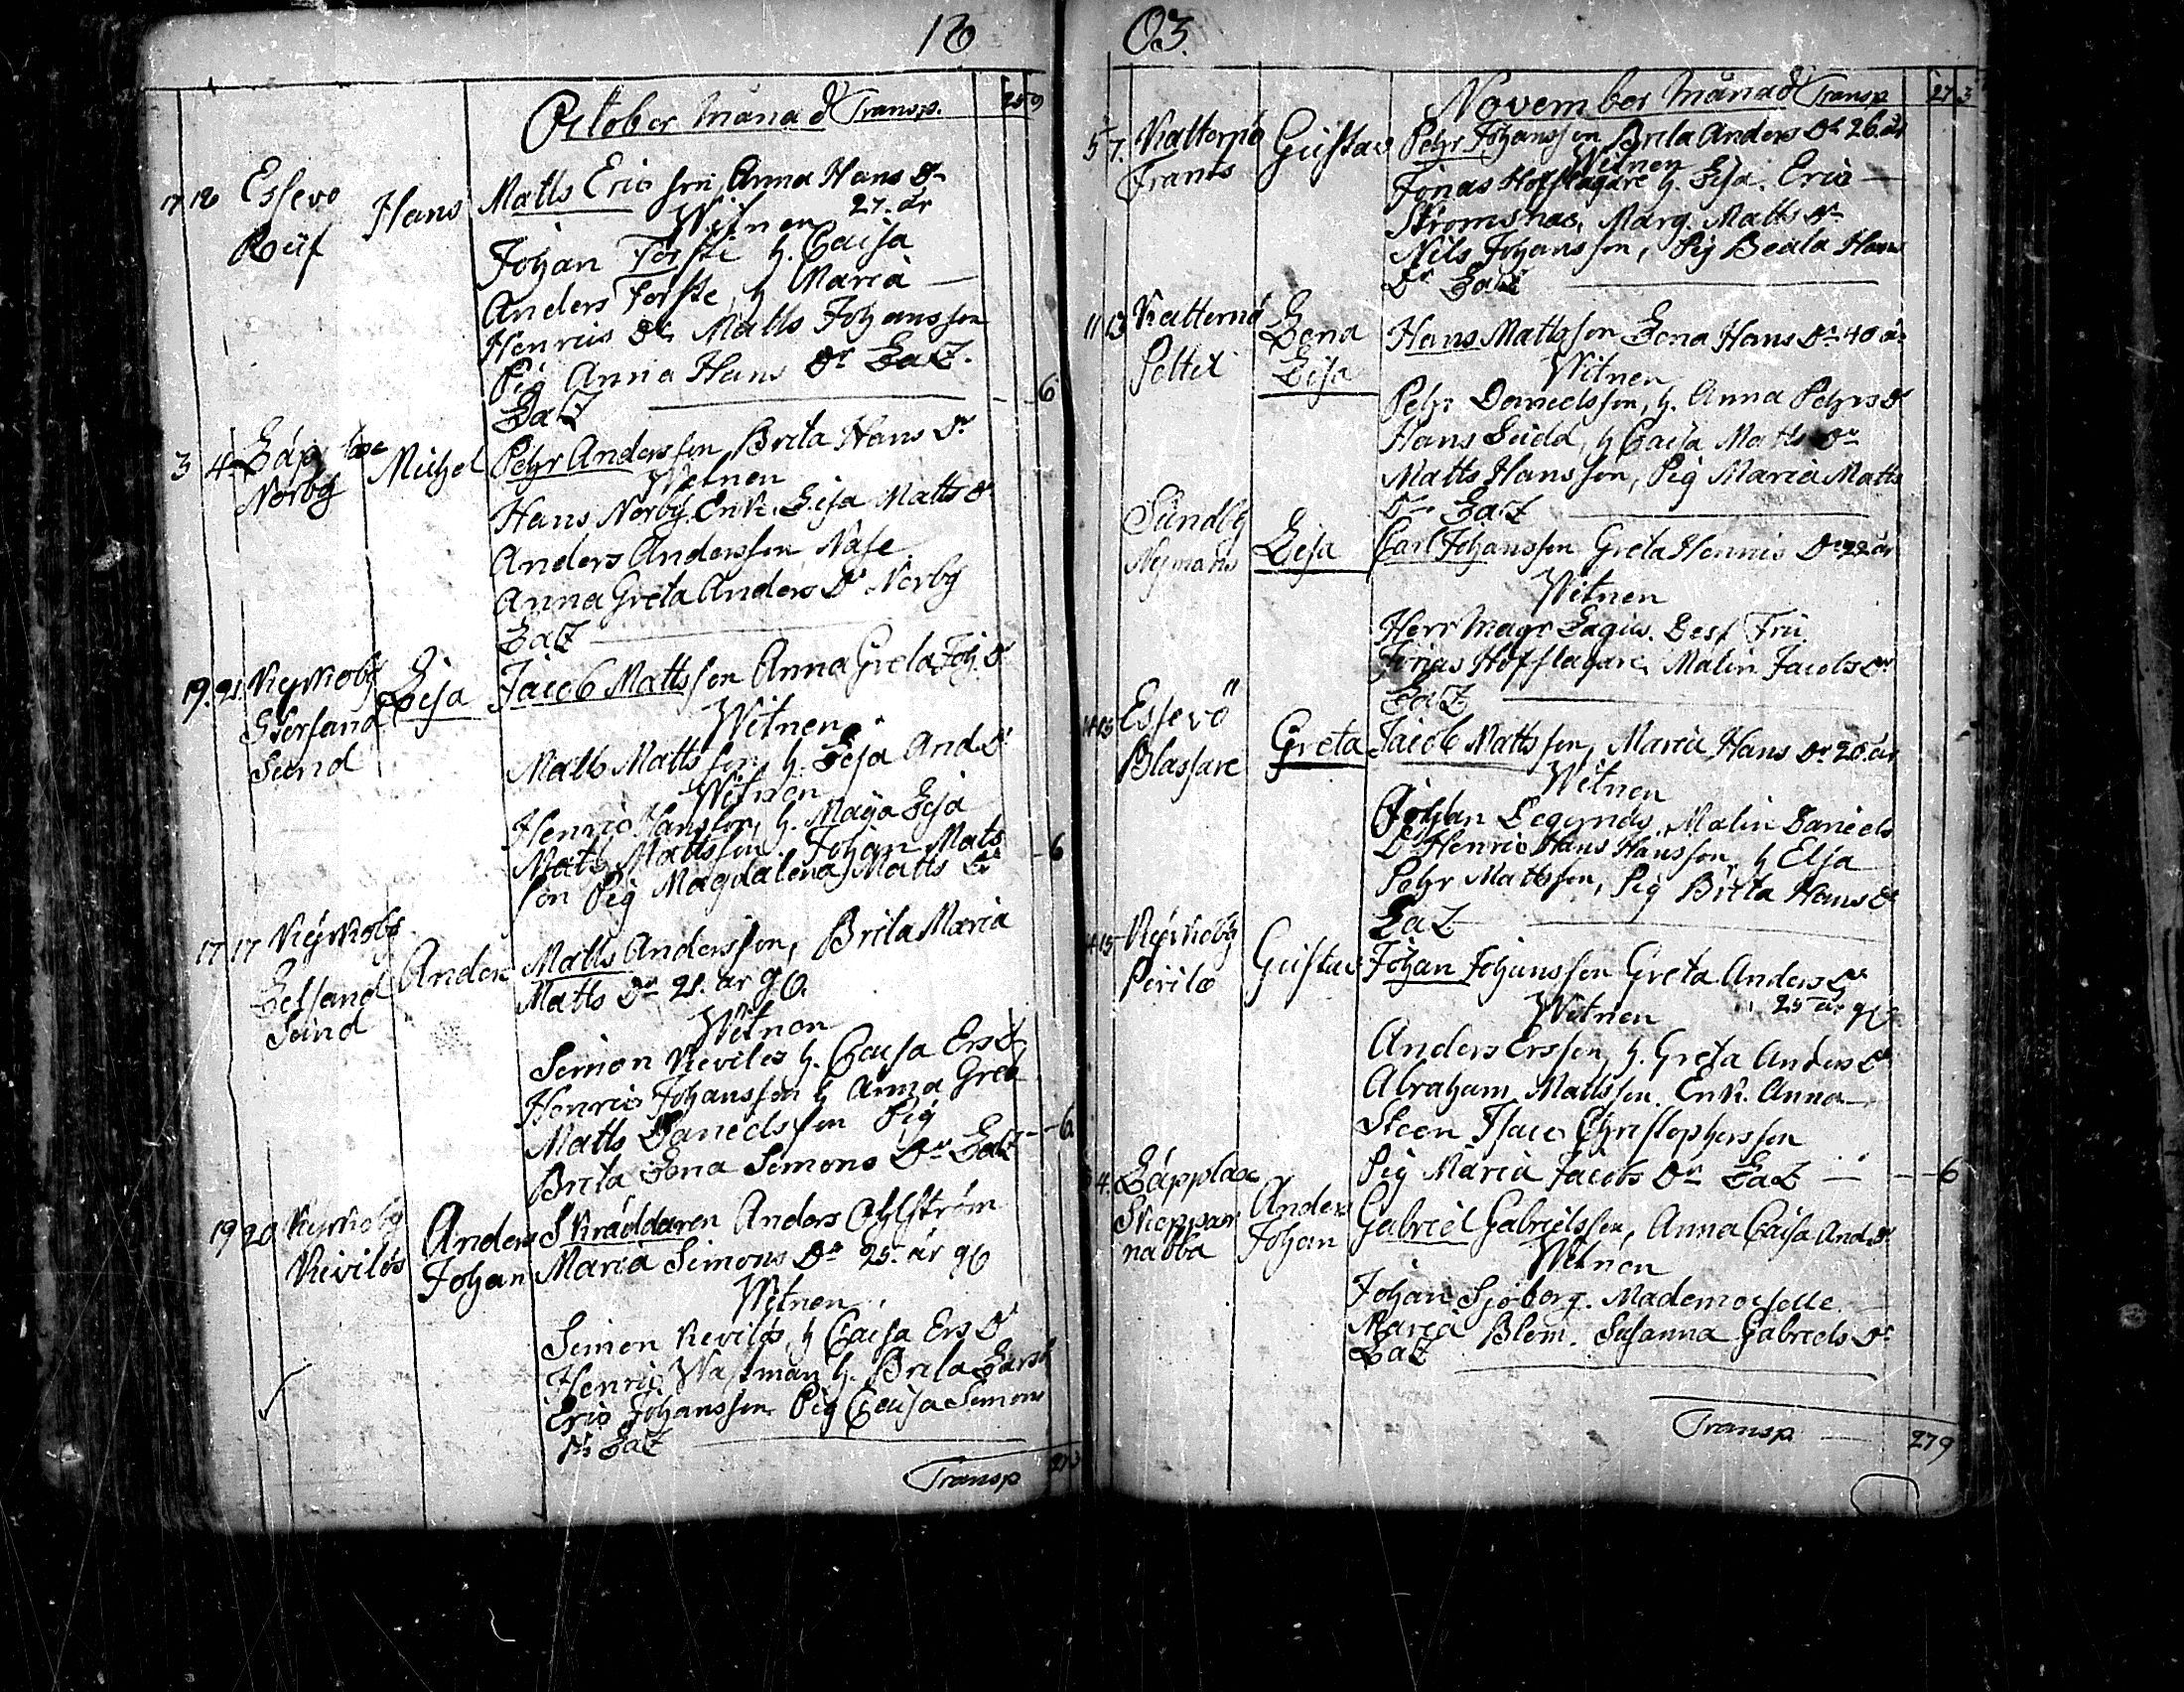 18
October Månad Transp. 259
17 18 Essevö Hans Matts Ericsson, Anna Hans Dr
Rüf 27. år
Witnen
Johan Torske h. Caisa
Anders Torske, h Maria
Henrics Dr Matts Johansson
Pig Anna Hans Dr LaZ.
LaZ 6
3 4 Michel Pehr Andersson, Brita Hans Dr
Norby Witnen
Hans Norby. Enk. Lisa Matts Dr
Anders Andersson Nase
Anna Greta Anders Dr Norby
LaZ
19. 21. Kyrkoby Lisa Jacob Mattsson Anna Greta Joh. Dr
Storsand
Sund Witnen
Matts Mattsson, h. Lisa And. Dr
Witnen
Henric Hansson, h. Maja Lisa
Matts Mattsson Johan Mats
son Pig Magdalena Matts Dr 6
17 17 Kyrkoby Anders Matts Andersson, Brita Maria
Sund Matts Dr 21. år g6.
Witnen
Simon Kevilös h. Caisa Ers Dr
Henric Johansson h Anna Greta
Matts Danielsson Pig
Brita Lena Simons Dr LaZ 6.
19 20 Kyrkoby Anders Skräddaren Anders Ahlström
Kevilös Johan Maria Simons Dr 25. år g6
Witnen
Simon Kevilös h Caisa Ers Dr
Henric Wasman h. Brita Lars Dr
Eric Johansson Pig Caisa Simons
Dr LaZ
Transp
03.
November Månad Transp 273
5 7. Katternö Gustav Pehr Johansson Brita Anders Dr 26. år
Frants Witnen
Jonas Hofslagare h. Lisa. Eric
Strömsnäs, Marg. Matts Dr
Nils Johansson, Pig Beata Hans
Dr LaZ
11 13 Katternö Lena Hans Mattsson Lena Hans Dr 40 år
Lisa Witnen
Pehr Danielsson, h. Anna Pehrs Dr
Hans Ludd, h Caisa Matts Dr
Matts Hansson, Pig Maria Matts
Dr LaZ
Sundby Lisa Carl Johansson Greta Henrics Dr 22 år
Nymans Witnen
Herr Magr Lagus. Dess Fru.
Jonas Hofslagare, Malin Jacobs Dr
LaZ
14 15 Essevö Greta Jacob Mattsson, Maria Hans Dr 28. år
Blassare Witnen
Johan Malin Daniels
Dr Henric Hans Hansson, h Elsa
Pehr Mattsson, Pig Brita Hans Dr
LaZ
14 15 Kyrkoby Gustav Johan Johansson Greta Anders Dr
25 år g6
Witnen
Anders Ersson, h. Greta Anders Dr
Abraham Mattsson. Enk. Anna
Steen Isaac Christophersson
Pig Maria Jacobs Dr LaZ 6
4. Läpplax Anders Gabriel Gabrielsson, Anna Caisa And. Dr
Skeppar Johan
nabba Witnen
Johan Sjöberg. Mademoiselle
Maria Blom. Susanna Gabriels Dr
LaZ
Transp 279